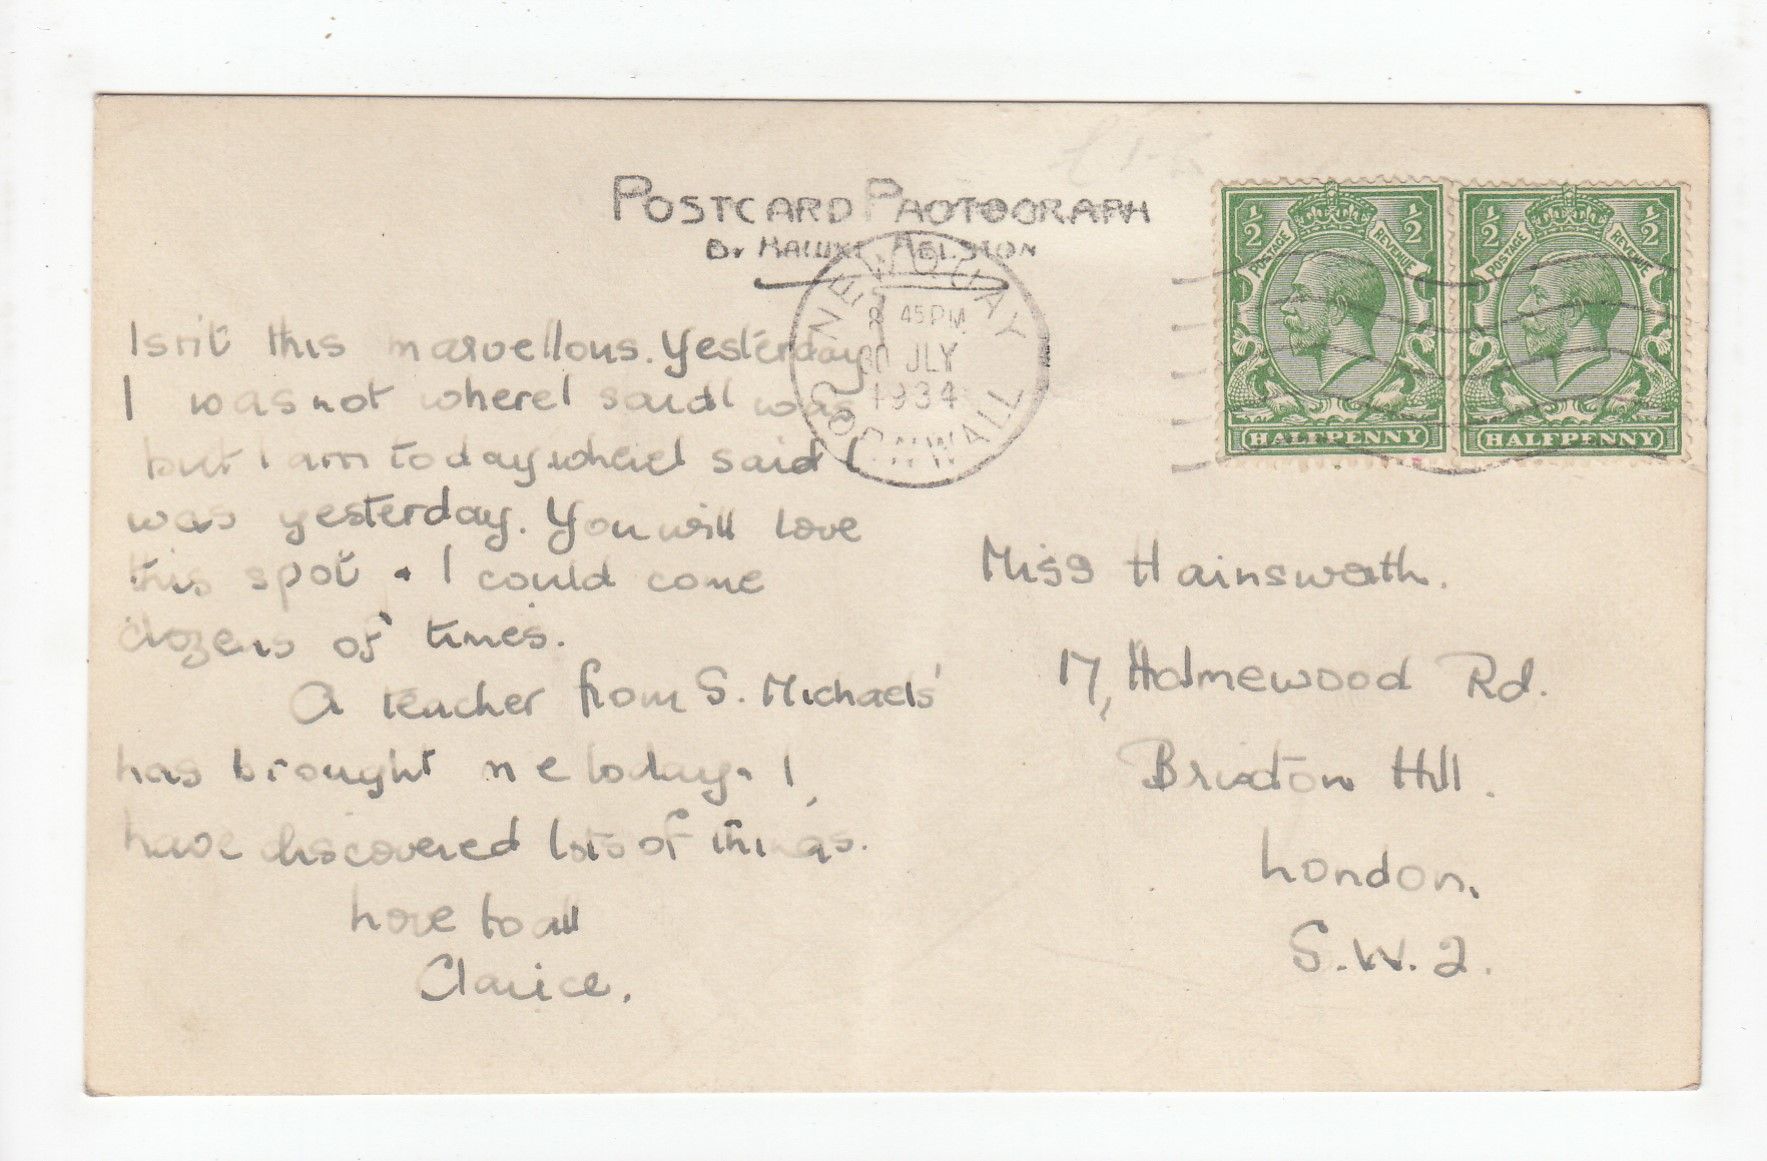 POSTCARD PHOTOGRAPH
BY
NEWQUAY
8 45 PM
30 JLY
1934
CORNWALL
1/2 1/2
POSTAGE REVENUE
HALFPENNY
1/2 1/2
POSTAGE REVENUE
HALFPENNY
Isn't this marvellous. Yesterday
I was not where I said I was
but I am today where I said I
was yesterday. You will love
this spot. I could come
dozens of times.
A teacher from S. Michaels'
has brought me today. I
have discovered lots of things.
Love to all
Clarice.
Miss Hainsworth.
17, Holmewood Rd.
Brixton Hill.
London,
S.W.2.